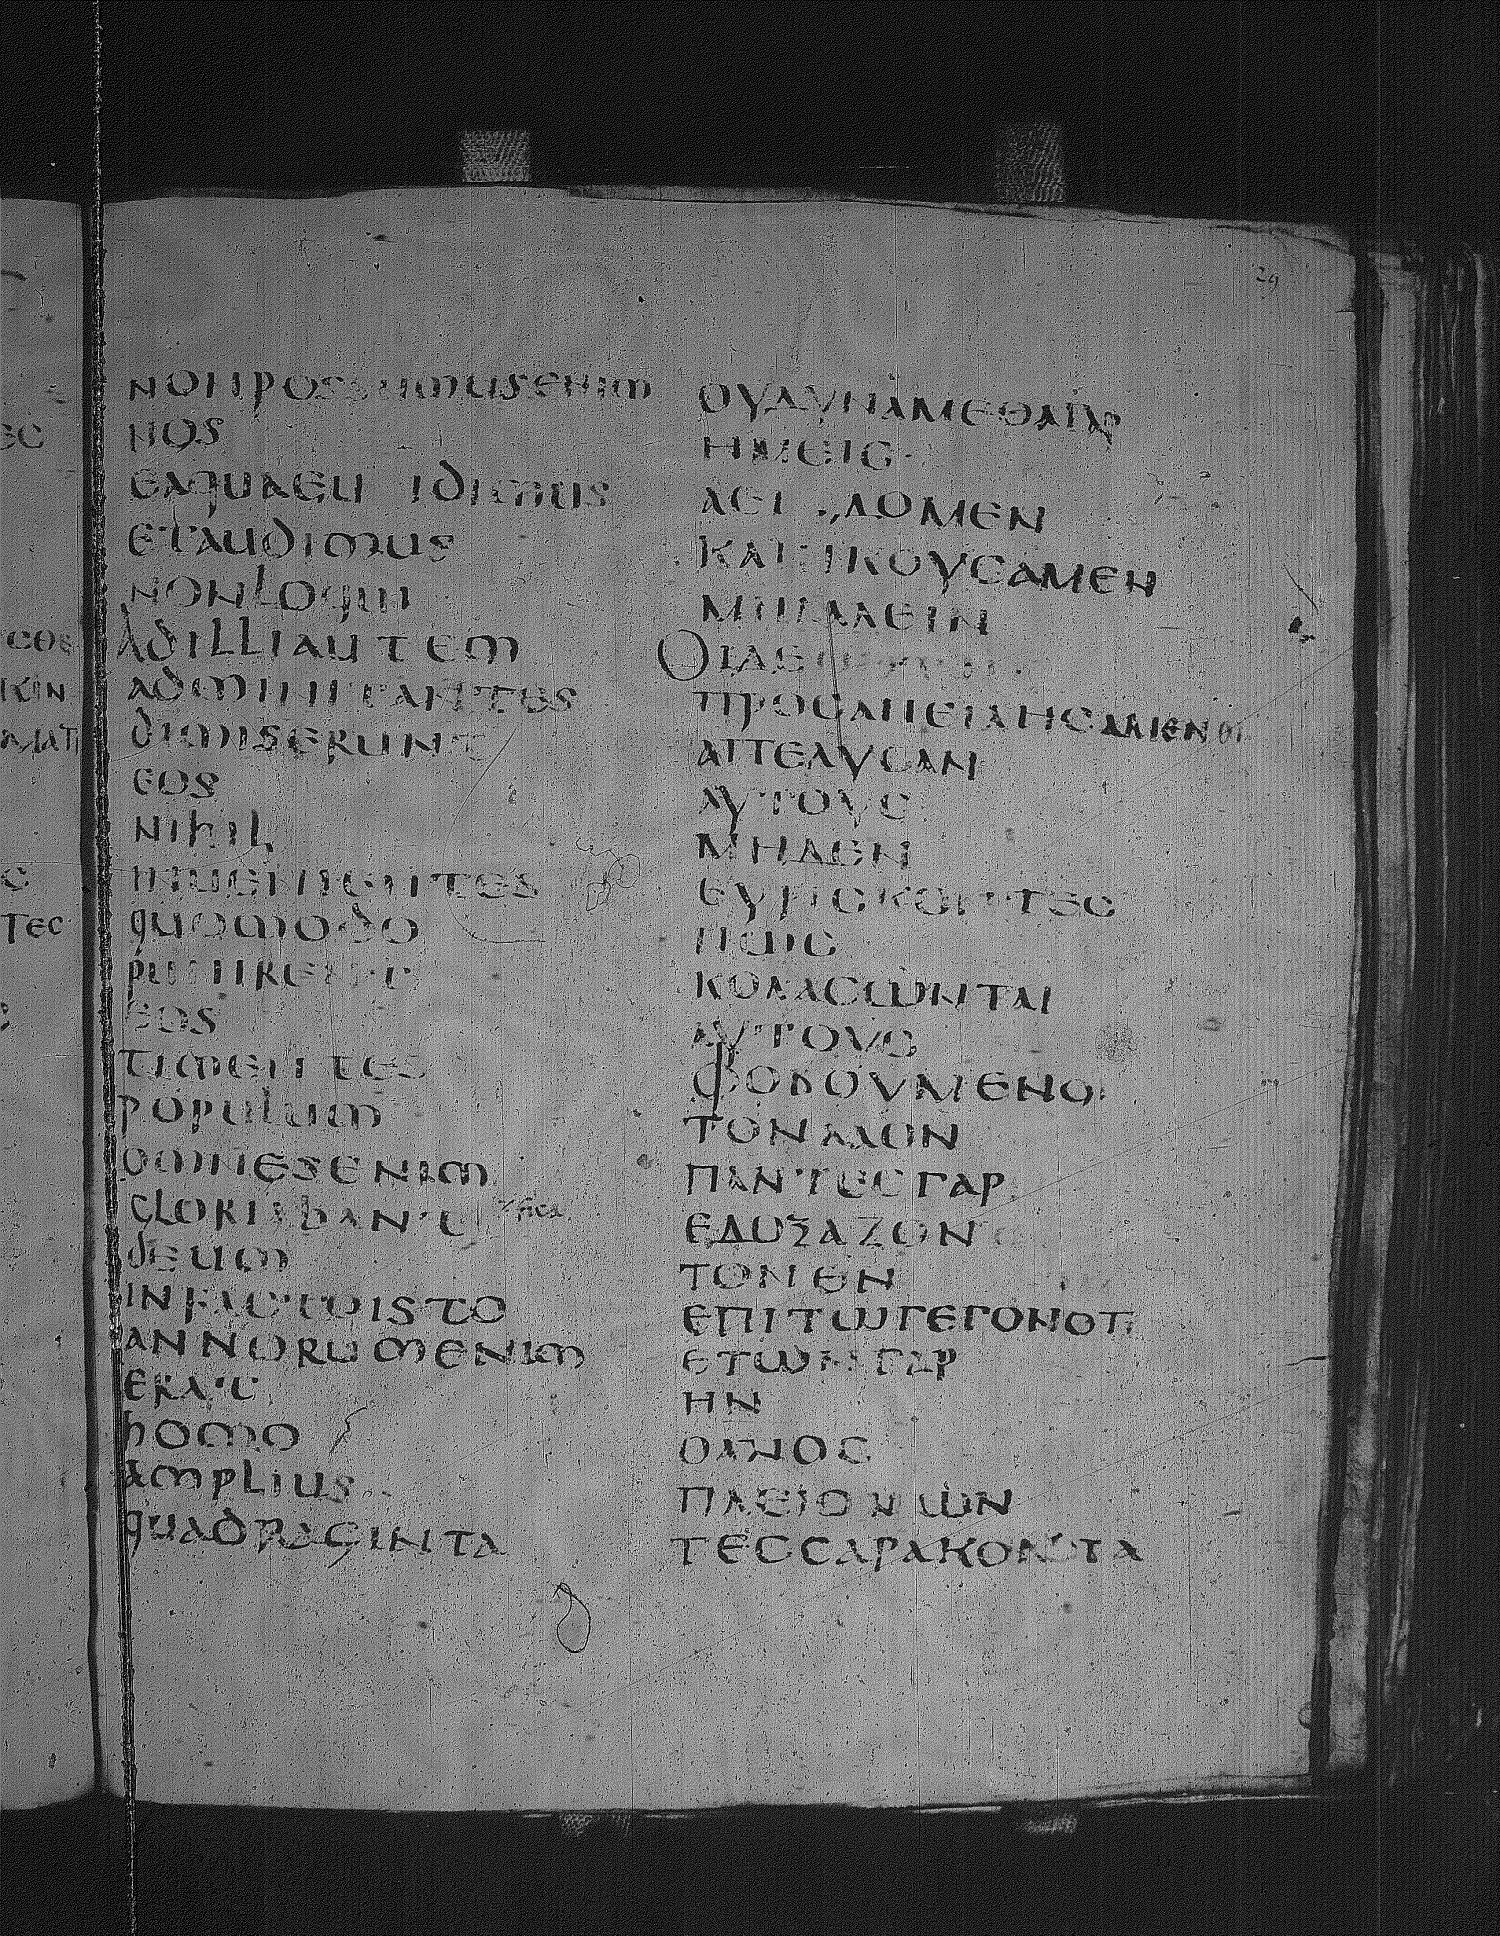 nonpossumusenim
nos
eaquaeuidimus
etaudimus
nonloqui
Adilliautem
adminitantes
dimiserunt
eos
nihil
inuenientes
quomodo
punirent
eos
timentes
populum
omnesenim
cloriabant
deum
infactoisto
annorumenim
erat
homo
amplius
quadraginta
ΟΥΔΥΝΑΜΕΘΑΓΑΡ
ΗΜΕΙC
ΑΕΙΔΟΜΕΝ
ΚΑΙΗΚΟΥCΑΜΕΝ
ΜΗΛΑΛΕΙΝ
ΟΙΔΕ
ΠΡΟCΑΠΕΙΛΗCΑΜΕΝΟΙ
ΑΠΕΛΥCΑΝ
ΑΥΤΟΥC
ΜΗΔΕΝ
ΕΥΡΙCΚΟΝΤΕC
ΠΩC
ΚΟΛΑCΩΝΤΑΙ
ΑΥΤΟΥC
ΦΟΒΟΥΜΕΝΟΙ
ΤΟΝΛΑΟΝ
ΠΑΝΤΕCΓΑΡ
ΕΔΟΞΑΖΟΝ
ΤΟΝΘΝ
ΕΠΙΤΩΓΕΓΟΝΟΤΙ
ΕΤΩΝΓΑΡ
ΗΝ
ΟΑΝΟC
ΠΛΕΙΟΝΩΝ
ΤΕCCΑΡΑΚΟΝΤΑ
29